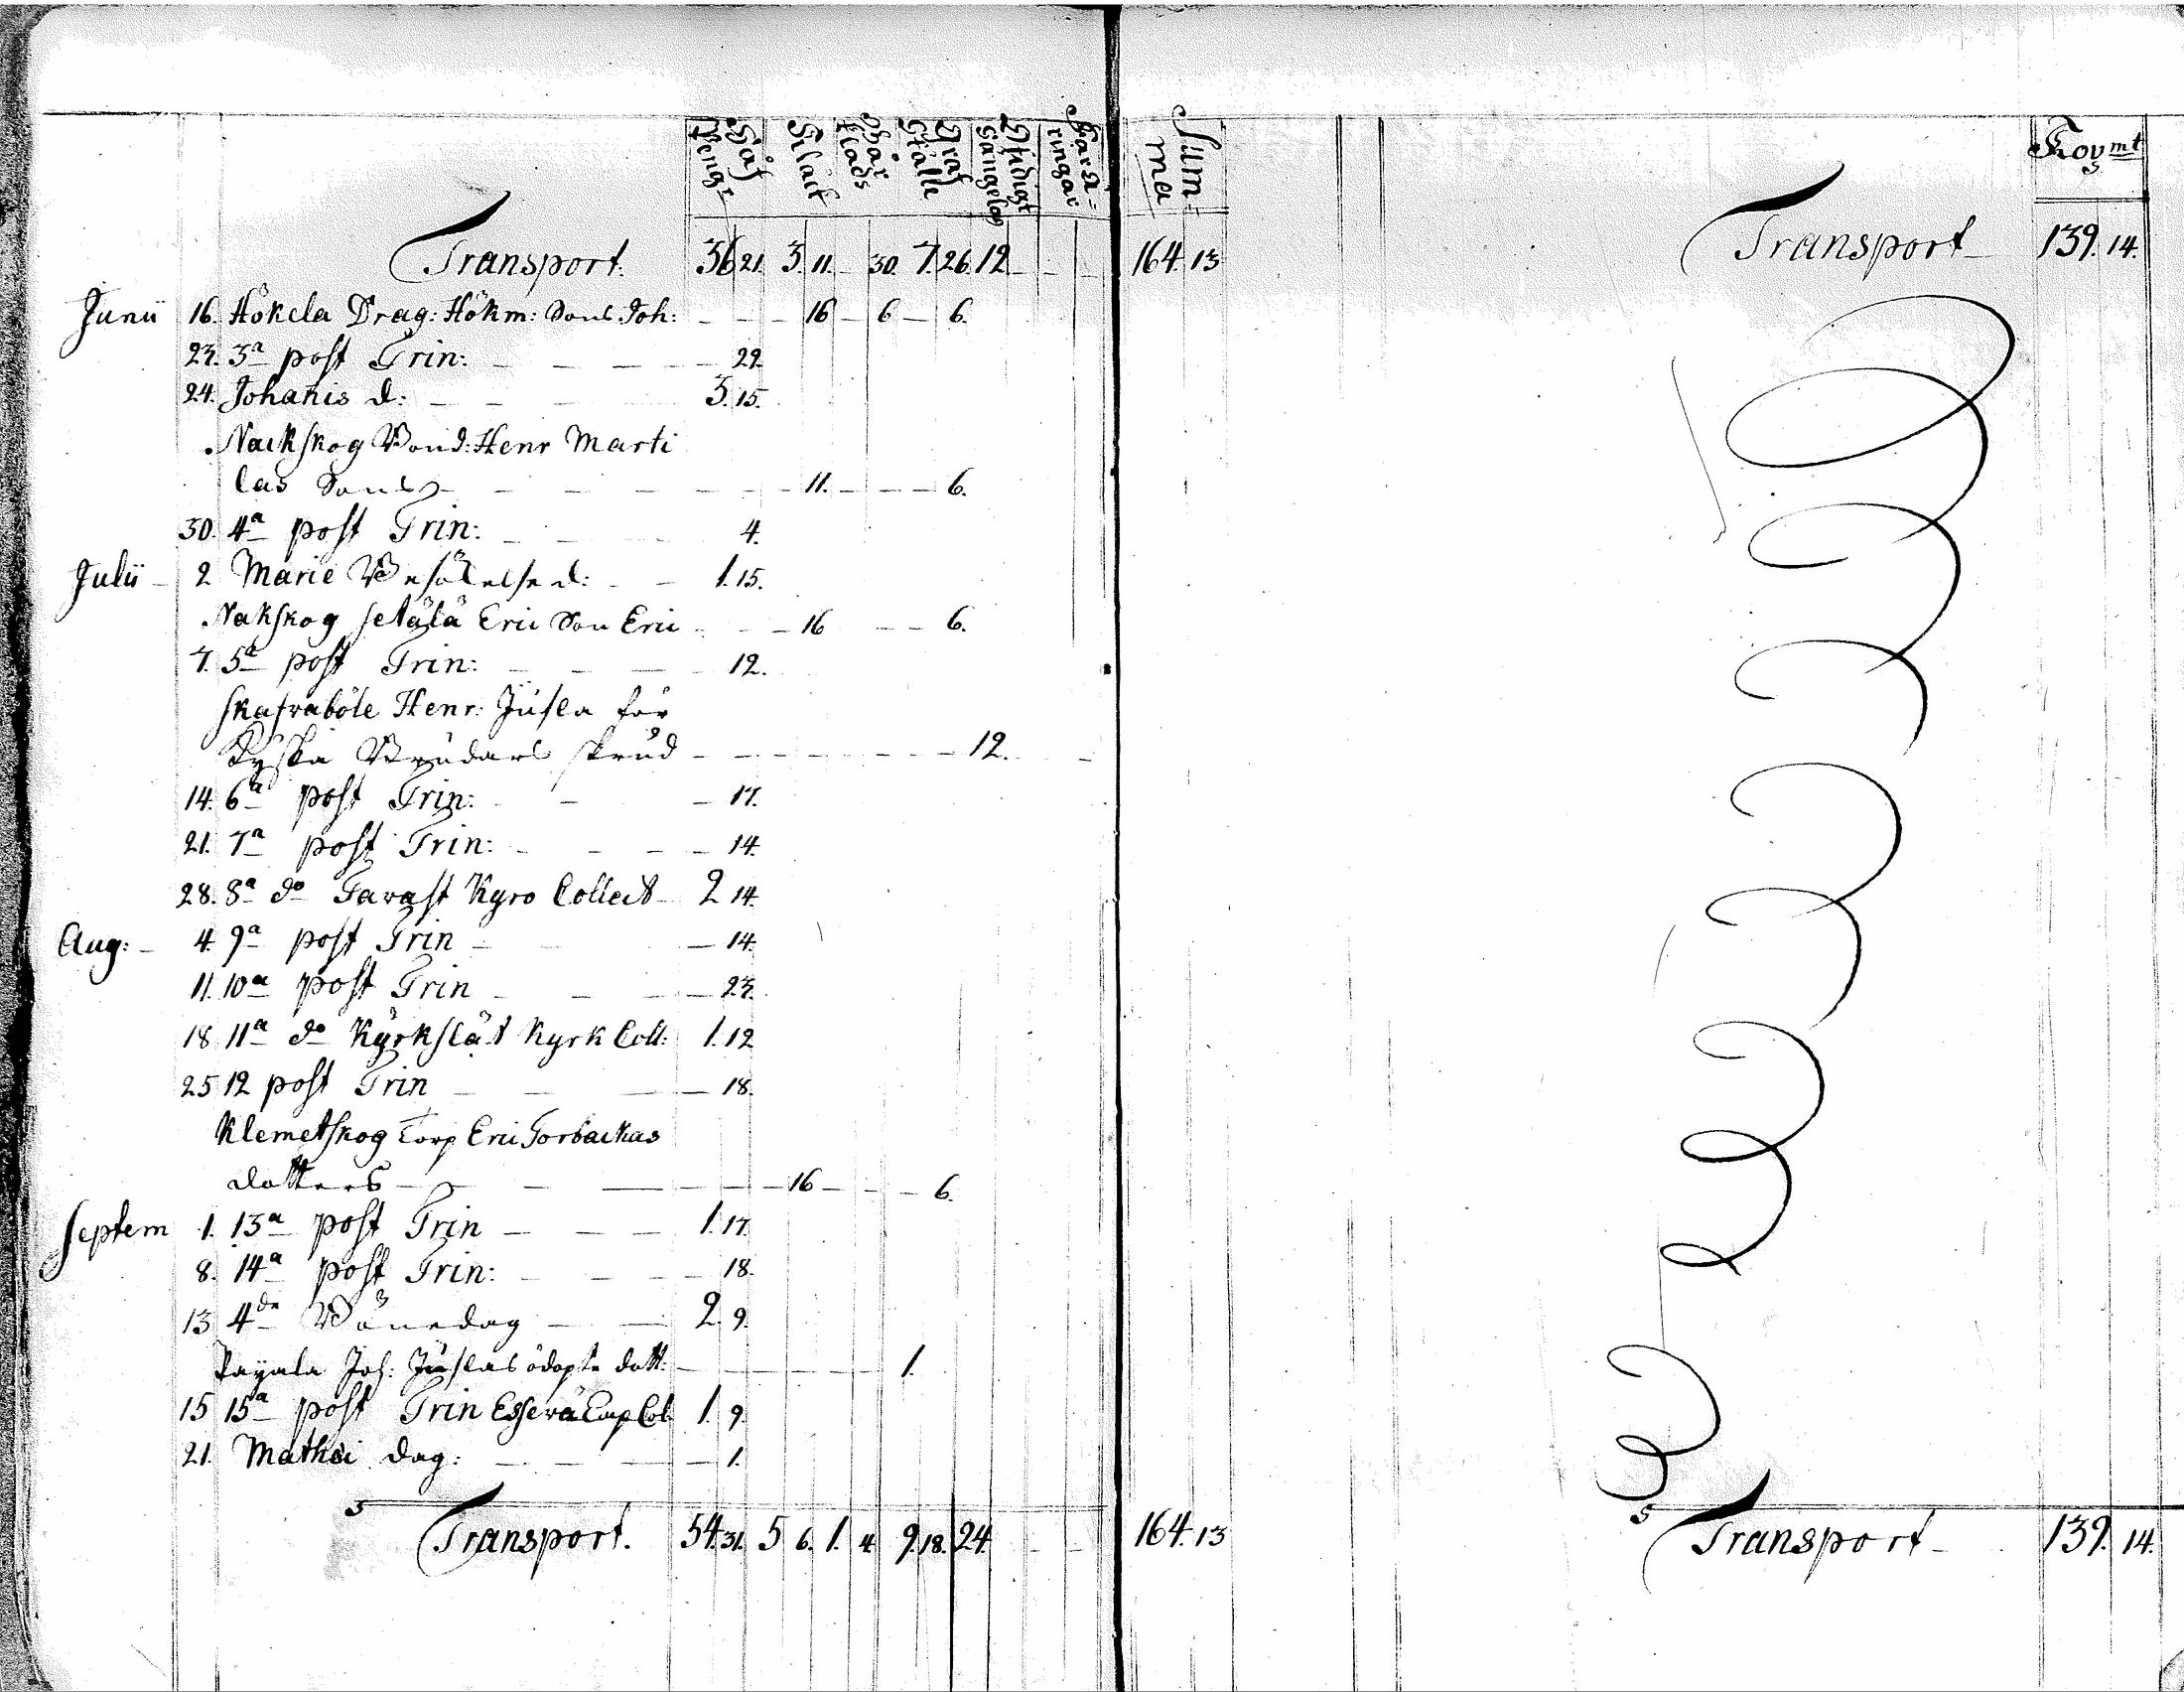 Håf Peng:r Gilaif Bår kläds Graf Ställe Otidigt Sängelag Föräringar Sumᵐᵃ Koymt
Transport. 36 21. 3. 11. – 30. 7. 26. 12. – – – 164. 13 Transport 139. 14.
Junii 16. Hökela Drag: Hökm: Sons Joh: – – – 16 – 6 – 6.
23. 3a post Trin: – – – – 22.
24. Johañis d: – – – 3. 15.
Nackskog Bond: Henr Marti
las Sons – – – – – – 11. – – – 6.
30. 4a post Trin: – – 4.
Julii – 2 Marie Besökelse d: – – 1. 15.
Nakskog setälä Eric Son Eric – – – 16 – – 6.
7. 5a post Trin: – – – 12.
Skafraböle Henr: Jusla för
Tyska Brudars skrud – – – – – – – 12. –
14. 6a post Trin: – – – 17.
21. 7a post Trin: – – – – 14.
28. 8a do Tavast Kyro Collect – 2 14.
Aug: – 4 9a post Trin – – – 14.
11. 10a post Trin – – – – 23.
18 11a do Kyrkslät Kyrk Coll: 1. 12
25 12 post Trin – – – – 18.
Klemetskog Torp Eric Torbackas
dotters – – – – – – 16 – – – 6.
Septem 1. 13a post Trin – – – 1. 17.
8. 14a post Trin: – – – – 18.
13 4de Bönedag – – 2. 9.
Payala Joh: Juslas odöpte dott: – – – – – 1.
15 15a post Trin Esserä Cap Col. 1. 9.
21. Mathei dag: – – – – 1.
S Transport. 54. 31. 5 6. 1. 4. 9. 18. 24. – – 164. 13 S Transport – 139. 14.